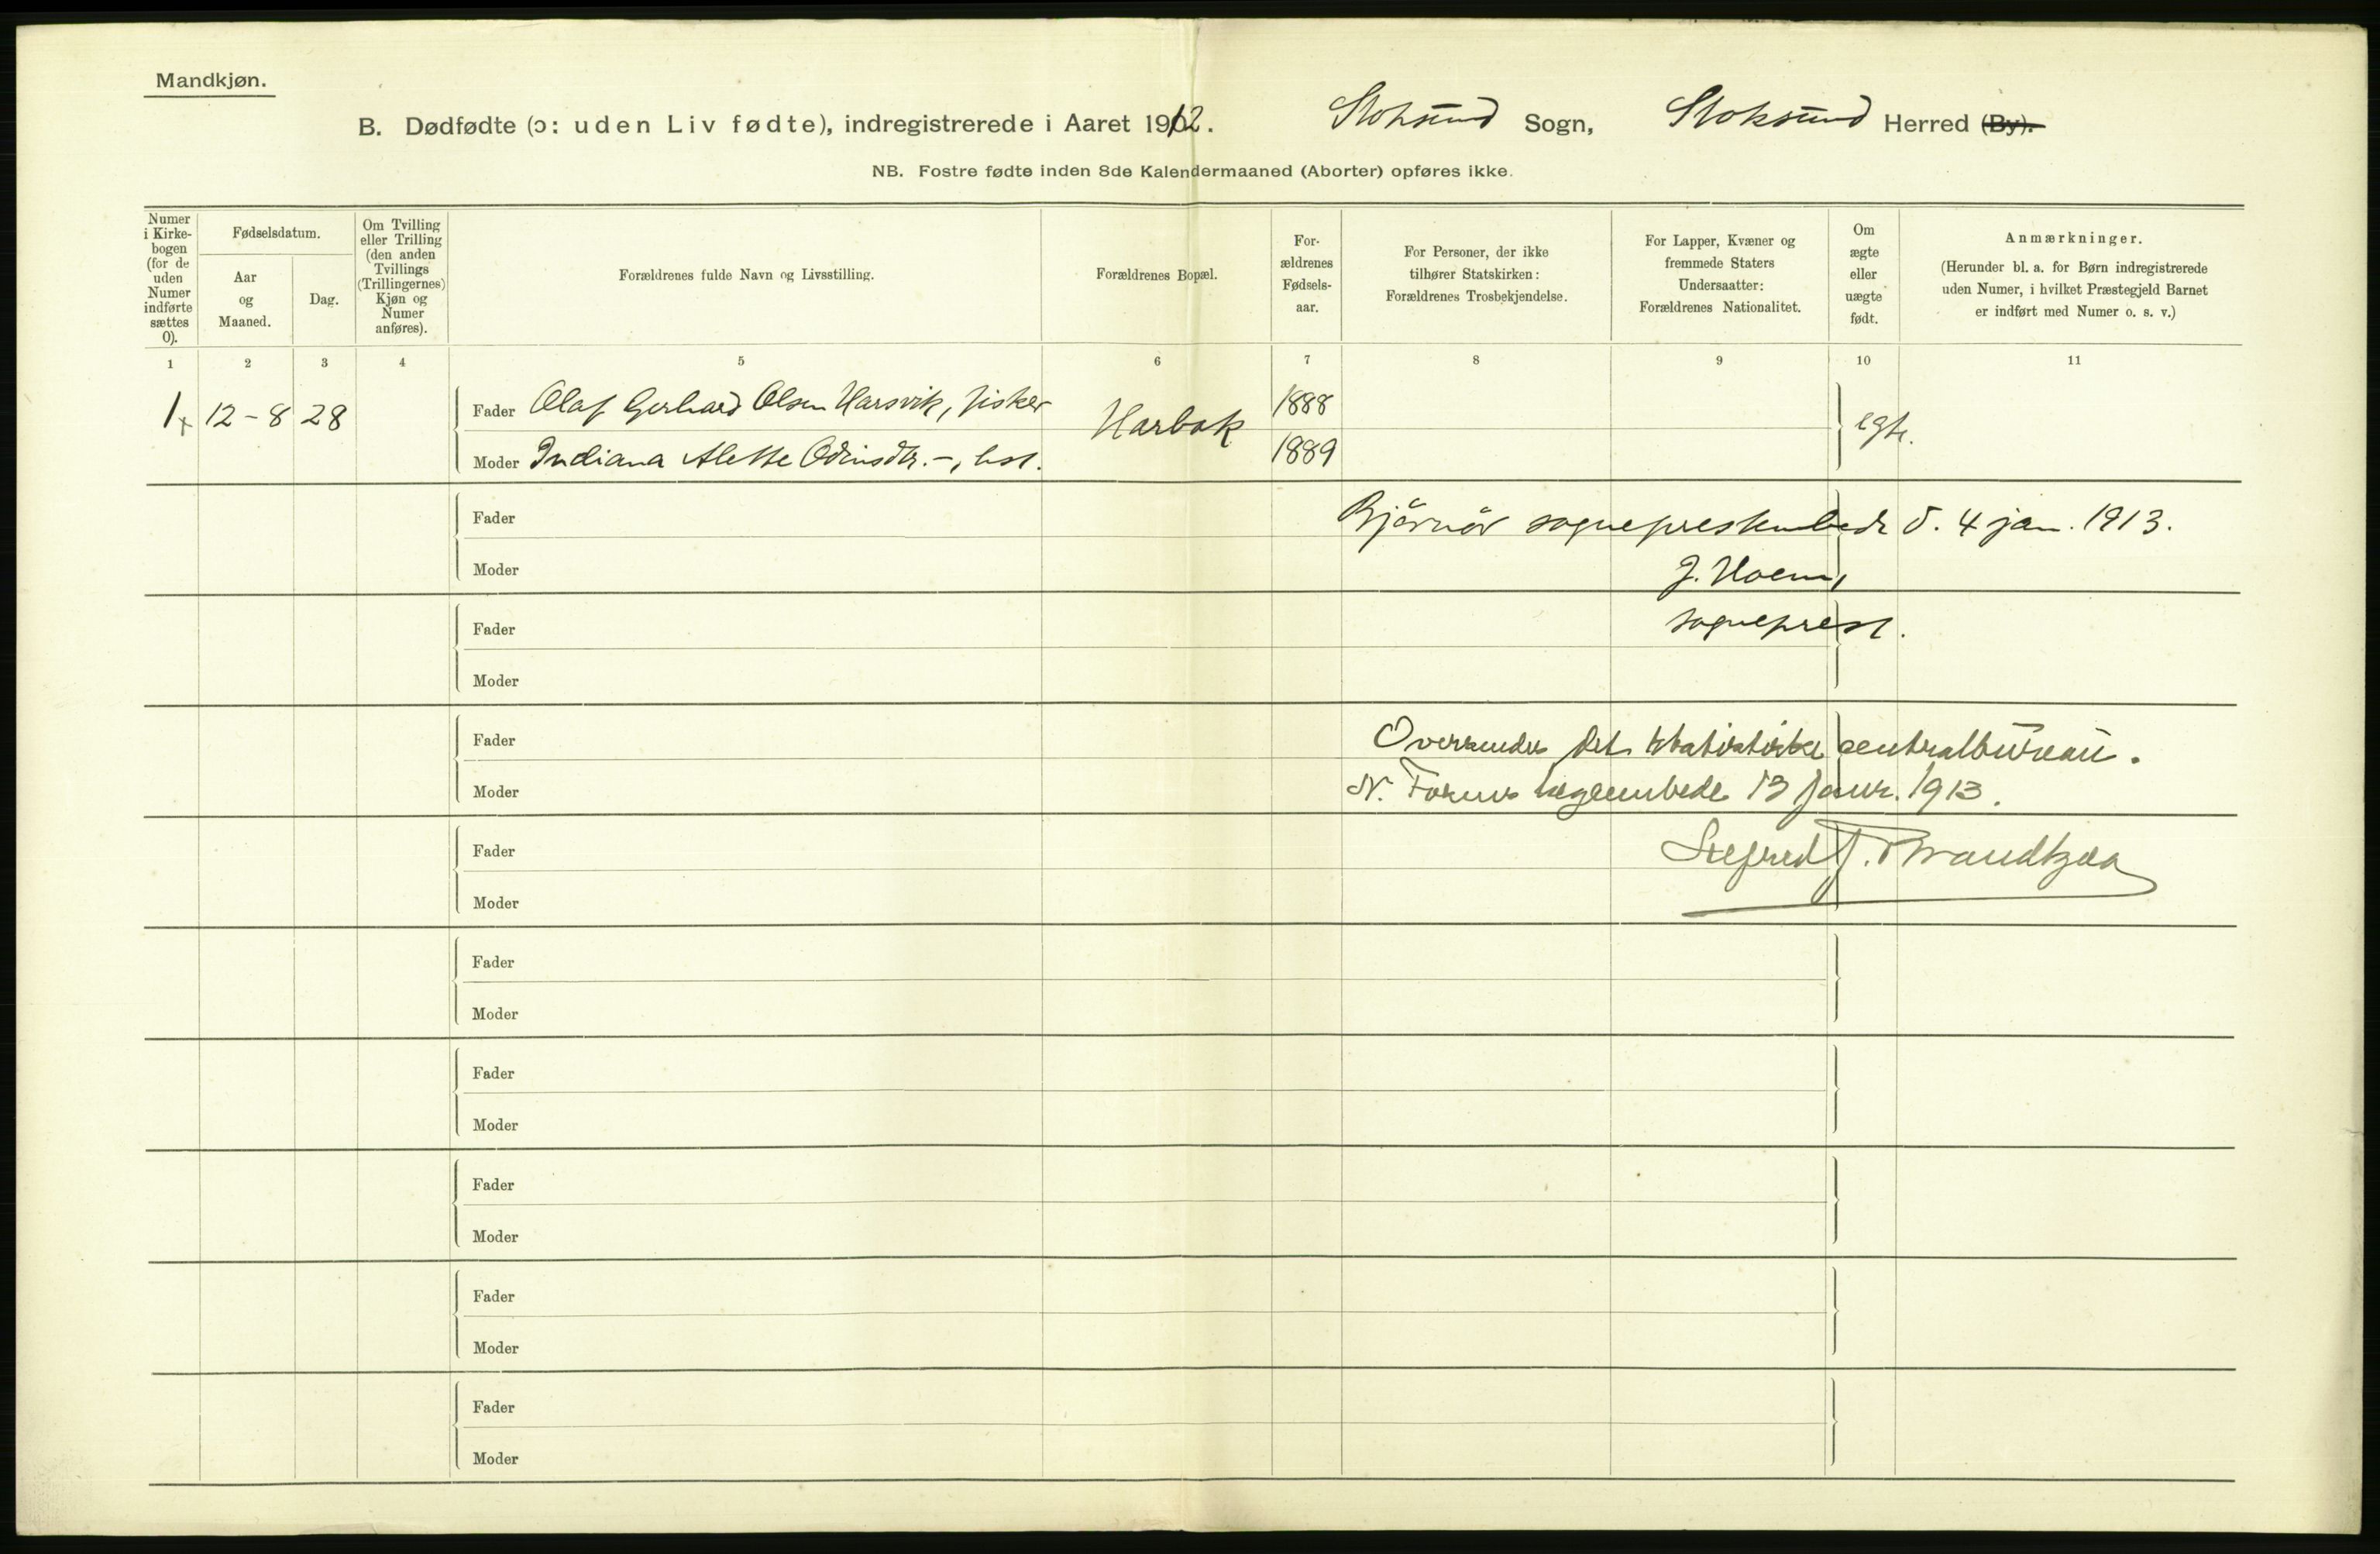 Mandkjøn.
B. Dødfødte (ɔ: uden Liv fødte), indregistrerede i Aaret 1912. Stoksund Sogn, Stoksund Herred (By).
NB. Fostre fødte inden 8de Kalendermaaned (Aborter) opføres ikke.
Numer
i Kirke-
bogen
(for de
uden
Numer
indførte
sættes
0).
Fødselsdatum.
Aar
og
Maaned.
Dag.
Om Tvilling
eller Trilling
(den anden
Tvillings
(Trillingernes)
Kjøn og
Numer
anføres).
Forældrenes fulde Navn og Livsstilling.
Forældrenes Bopæl.
For-
ældrenes
Fødsels-
aar.
For Personer, der ikke
tilhører Statskirken:
Forældrenes Trosbekjendelse.
For Lapper, Kvæner og
fremmede Staters
Undersaatter:
Forældrenes Nationalitet.
Om
ægte
eller
uægte
født.
Anmærkninger.
(Herunder bl. a. for Børn indregistrerede
uden Numer, i hvilket Præstegjeld Barnet
er indført med Numer o. s. v.)
1 2 3 4 5 6 7 8 9 10 11
1 12-8 28 Fader Olaf Gerhard Olsen Harsvik, fisker Harbak 1888 egte.
Moder Indiana Alette Odinsdtr. -, hst. 1889
Fader Bjørnør sogneprestembede d. 4 jan. 1913.
Moder J. Hoem,
Fader sogneprest.
Moder
Fader Oversendes Det statistiske centralbureau.
Moder N. Fosens lægeembede 13 januar. 1913.
Fader J. Brandtzæg
Moder
Fader
Moder
Fader
Moder
Fader
Moder
Fader
Moder
Fader
Moder